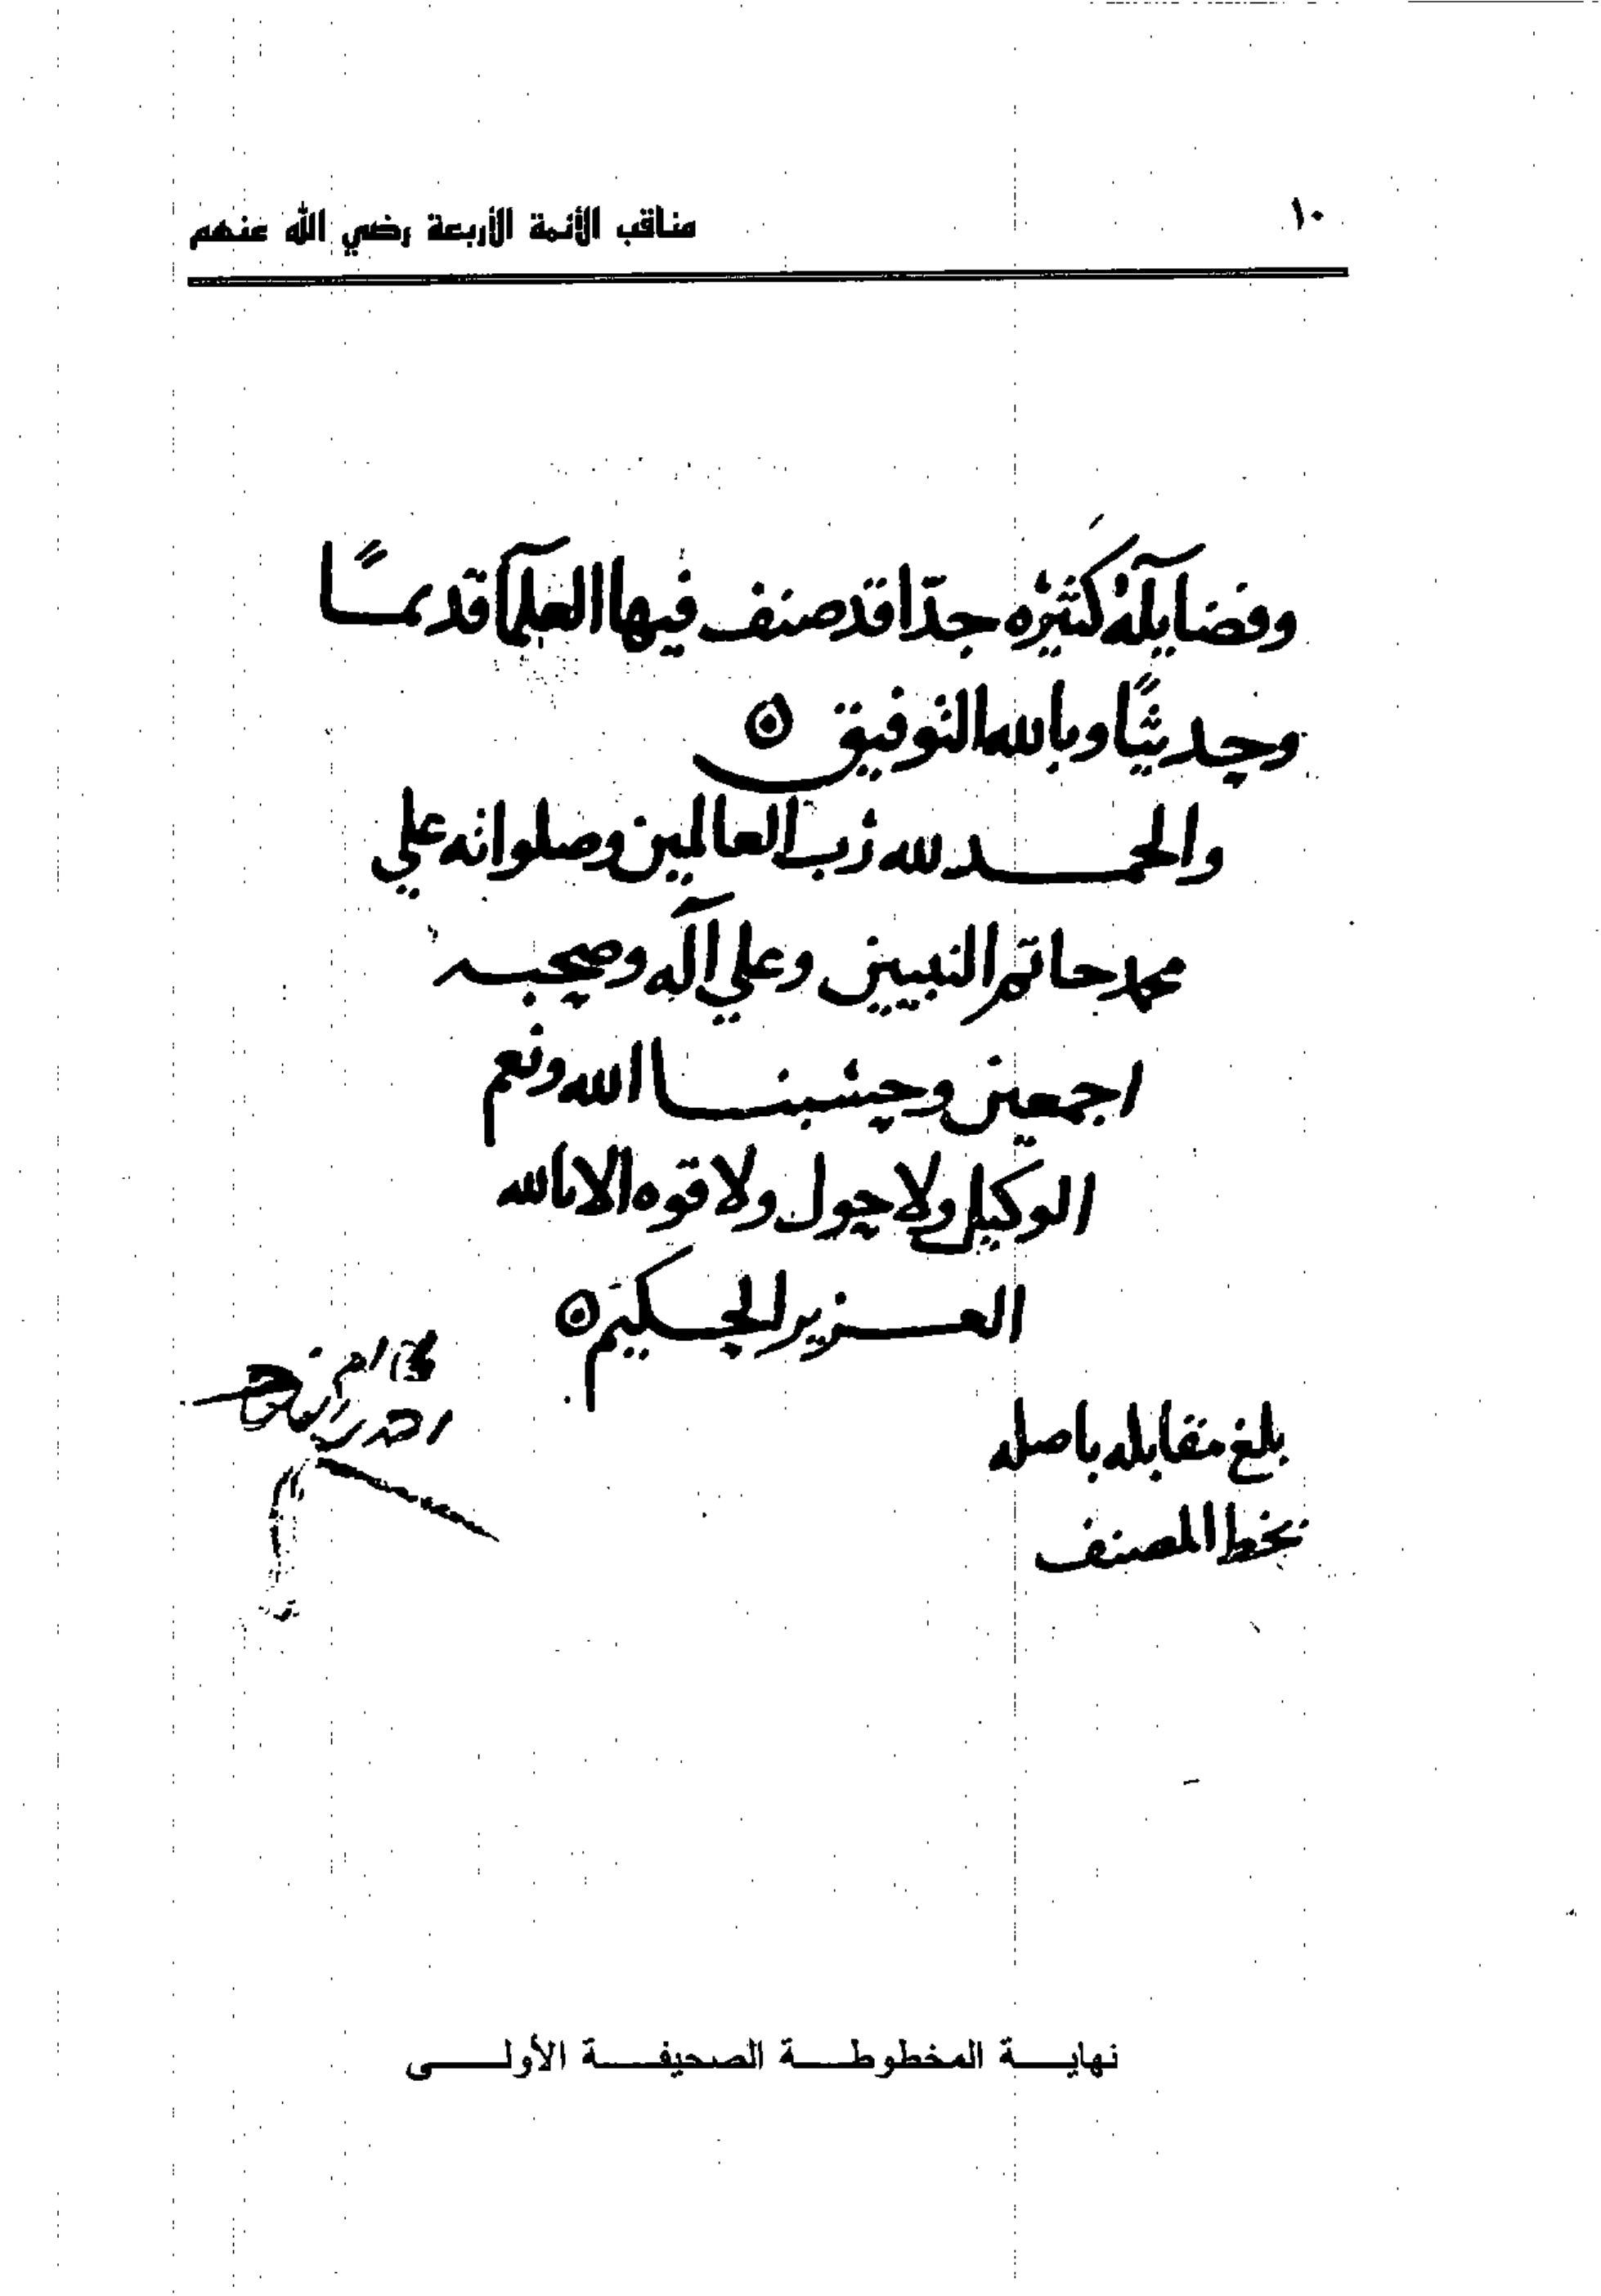 ١٠ مناقب الأئمة الأربعة رضي الله عنهم
وفضايله كثيره جدّا قد صنف فيها العلمآ قديمًا
وحديثًا وبالله التوفيق ۞
والحمد لله رب العالمين وصلواته علي
محمد خاتم النبيين وعلي آله وصحبه
اجمعين وحسبنا الله ونعم
الوكيل ولا حول ولا قوه الا بالله
العزيز الحكيم ۞
بلغ مقابله باصله
بخط المصنف
نهاية المخطوطة الصحيفة الأولى